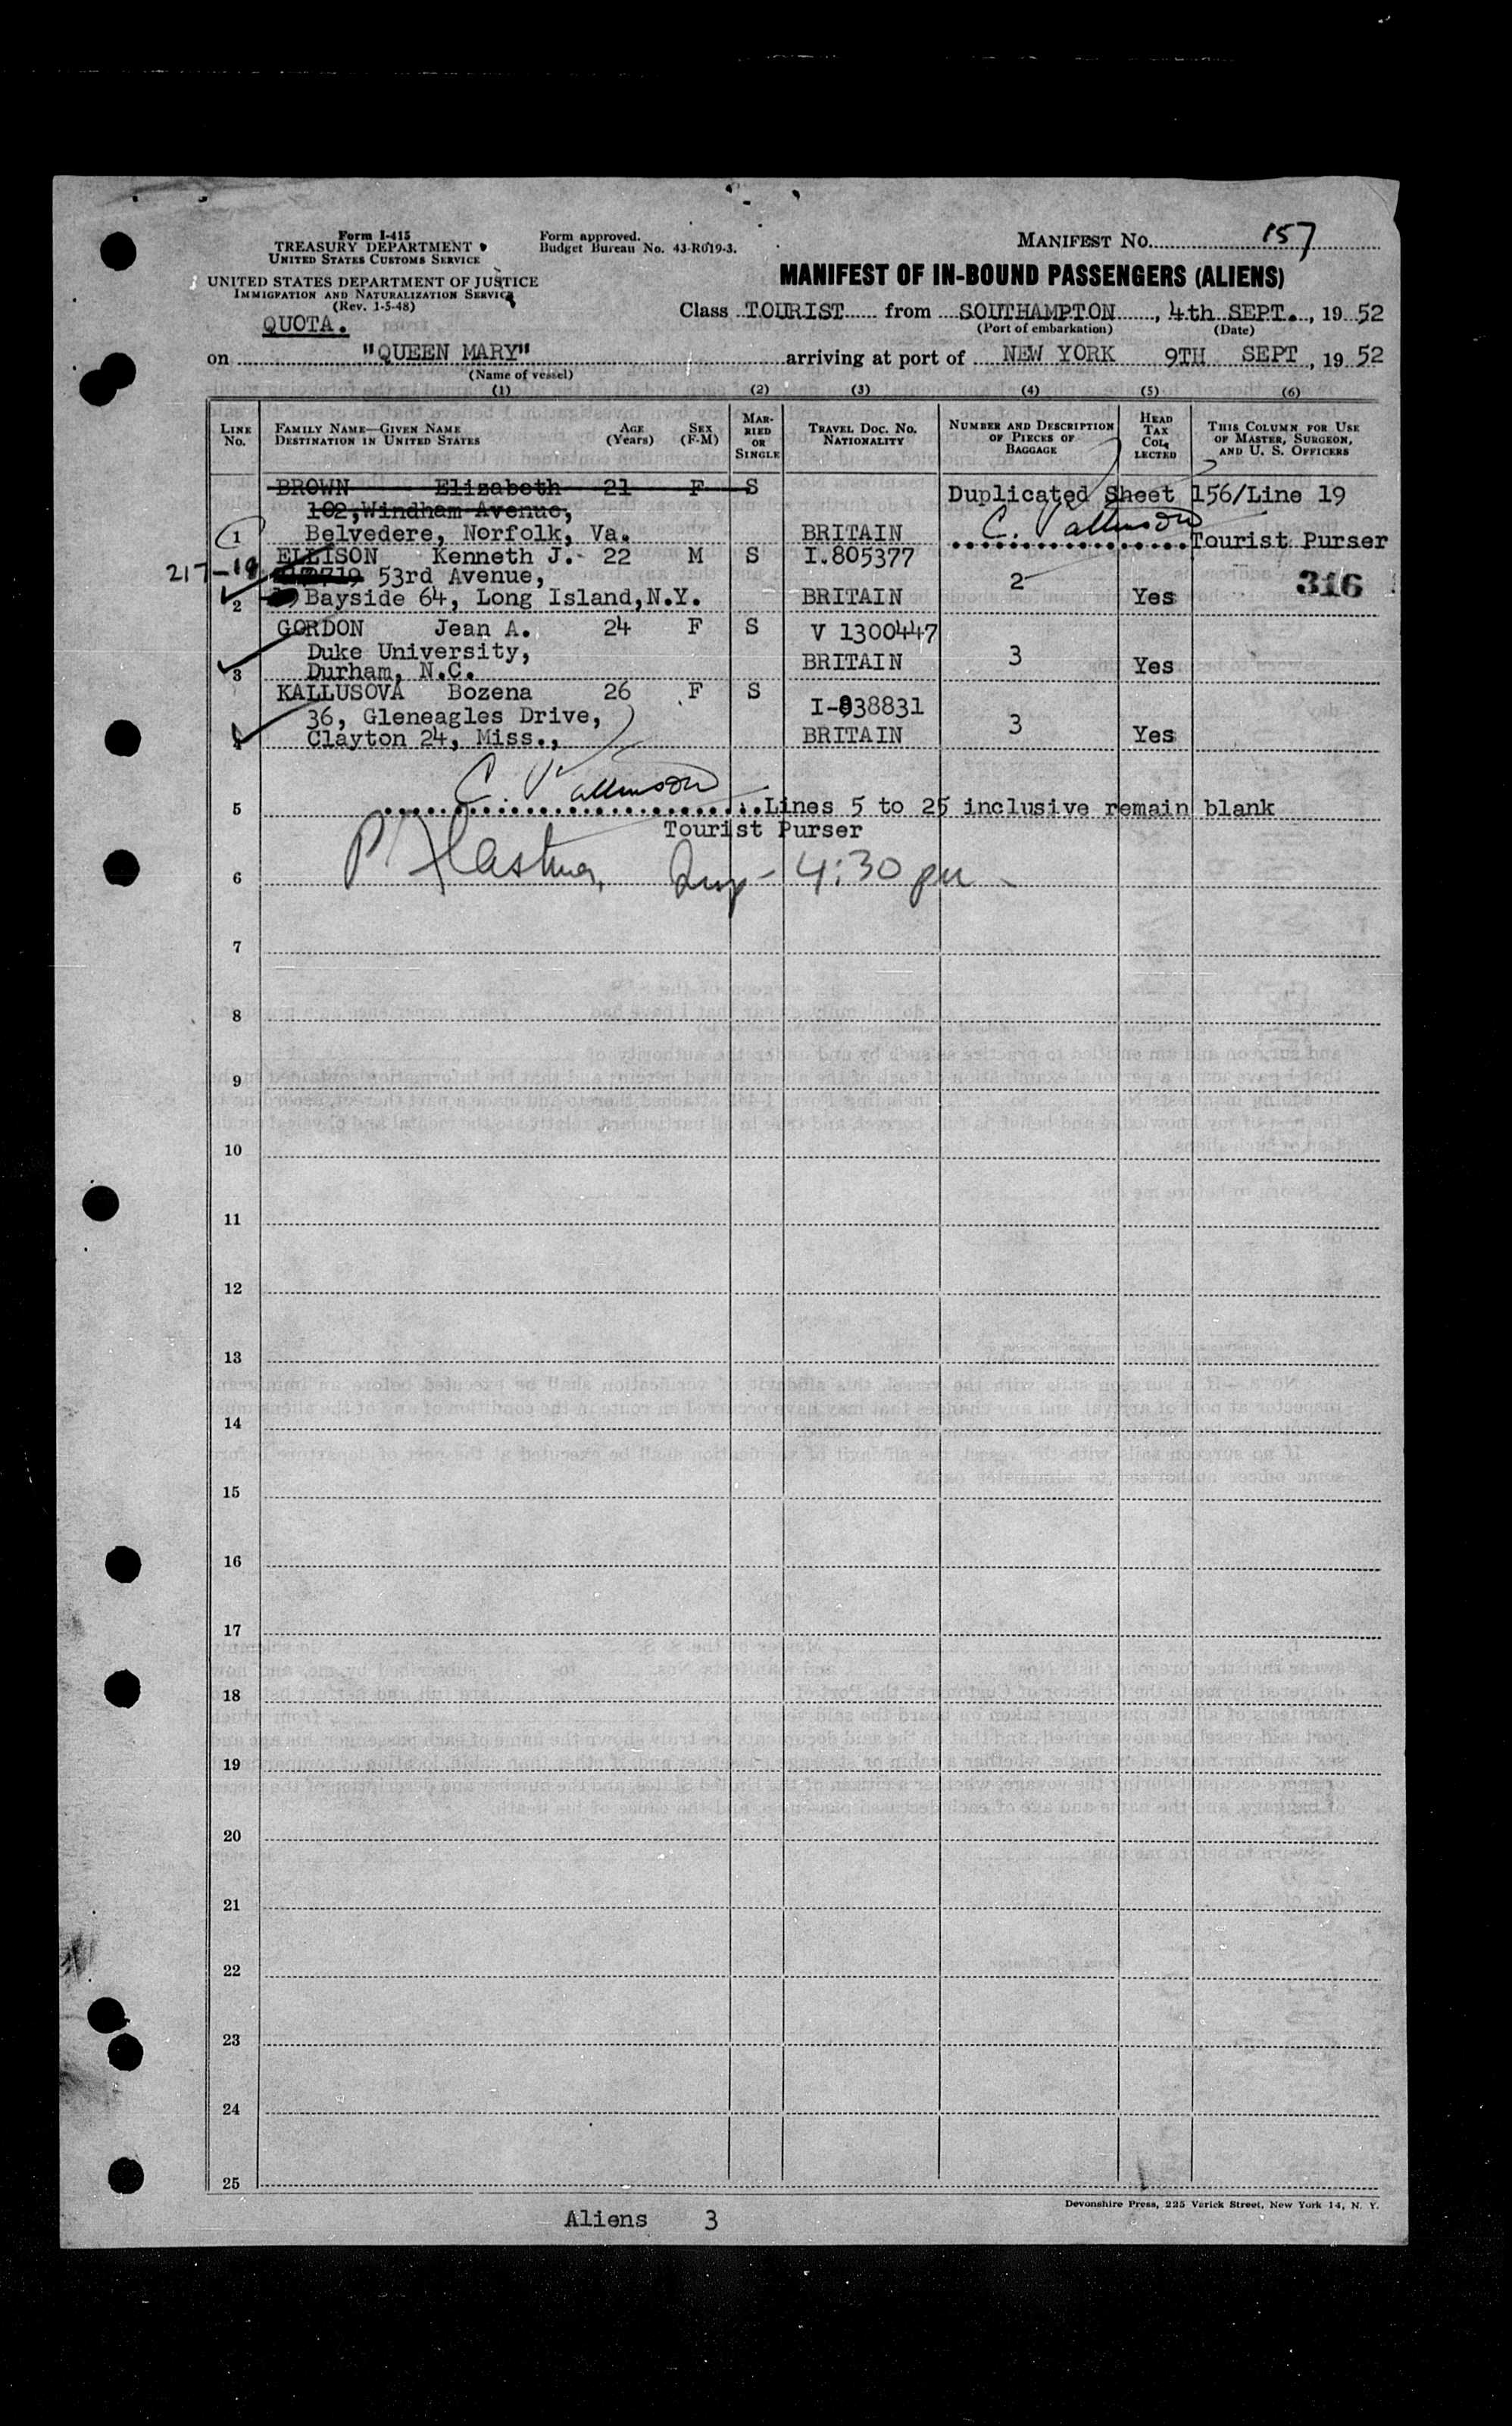 Form I-415
TREASURY DEPARTMENT
UNITED STATES CUSTOMS SERVICE
UNITED STATES DEPARTMENT OF JUSTICE
IMMIGRATION AND NATURALIZATION SERVICE
(Rev. 1-5-48)
QUOTA.
Form approved.
Budget Bureau No. 43-R019-3.
MANIFEST NO. 157
MANIFEST OF IN-BOUND PASSENGERS (ALIENS)
Class TOURIST from SOUTHAMPTON, 4th SEPT., 19 52
(Port of embarkation) (Date)
on "QUEEN MARY" arriving at port of NEW YORK 9TH SEPT, 19 52
(Name of vessel)
(1) (2) (3) (4) (5) (6)
LINE No. FAMILY NAME—GIVEN NAME DESTINATION IN UNITED STATES AGE (Years) SEX (F-M) MARRIED OR SINGLE TRAVEL DOC. NO. NATIONALITY NUMBER AND DESCRIPTION OF PIECES OF BAGGAGE HEAD TAX COLLECTED THIS COLUMN FOR USE OF MASTER, SURGEON, AND U. S. OFFICERS
BROWN Elizabeth 21 F S Duplicated Sheet 156/Line 19
102, Windham Avenue,
1 Belvedere, Norfolk, Va. BRITAIN Tourist Purser
ELLISON Kenneth J. 22 M S I.805377
217-19 53rd Avenue, 2 316
2 Bayside 64, Long Island, N.Y. BRITAIN Yes
GORDON Jean A. 24 F S V 1300447
Duke University, 3
3 Durham, N.C. BRITAIN Yes
KALLUSOVA Bozena 26 F S I-938831
36, Gleneagles Drive, 3
4 Clayton 24, Miss., BRITAIN Yes
5 Lines 5 to 25 inclusive remain blank
Tourist Purser
6 4:30 pm
7
8
9
10
11
12
13
14
15
16
17
18
19
20
21
22
23
24
25
Devonshire Press, 225 Varick Street, New York 14, N. Y.
Aliens 3